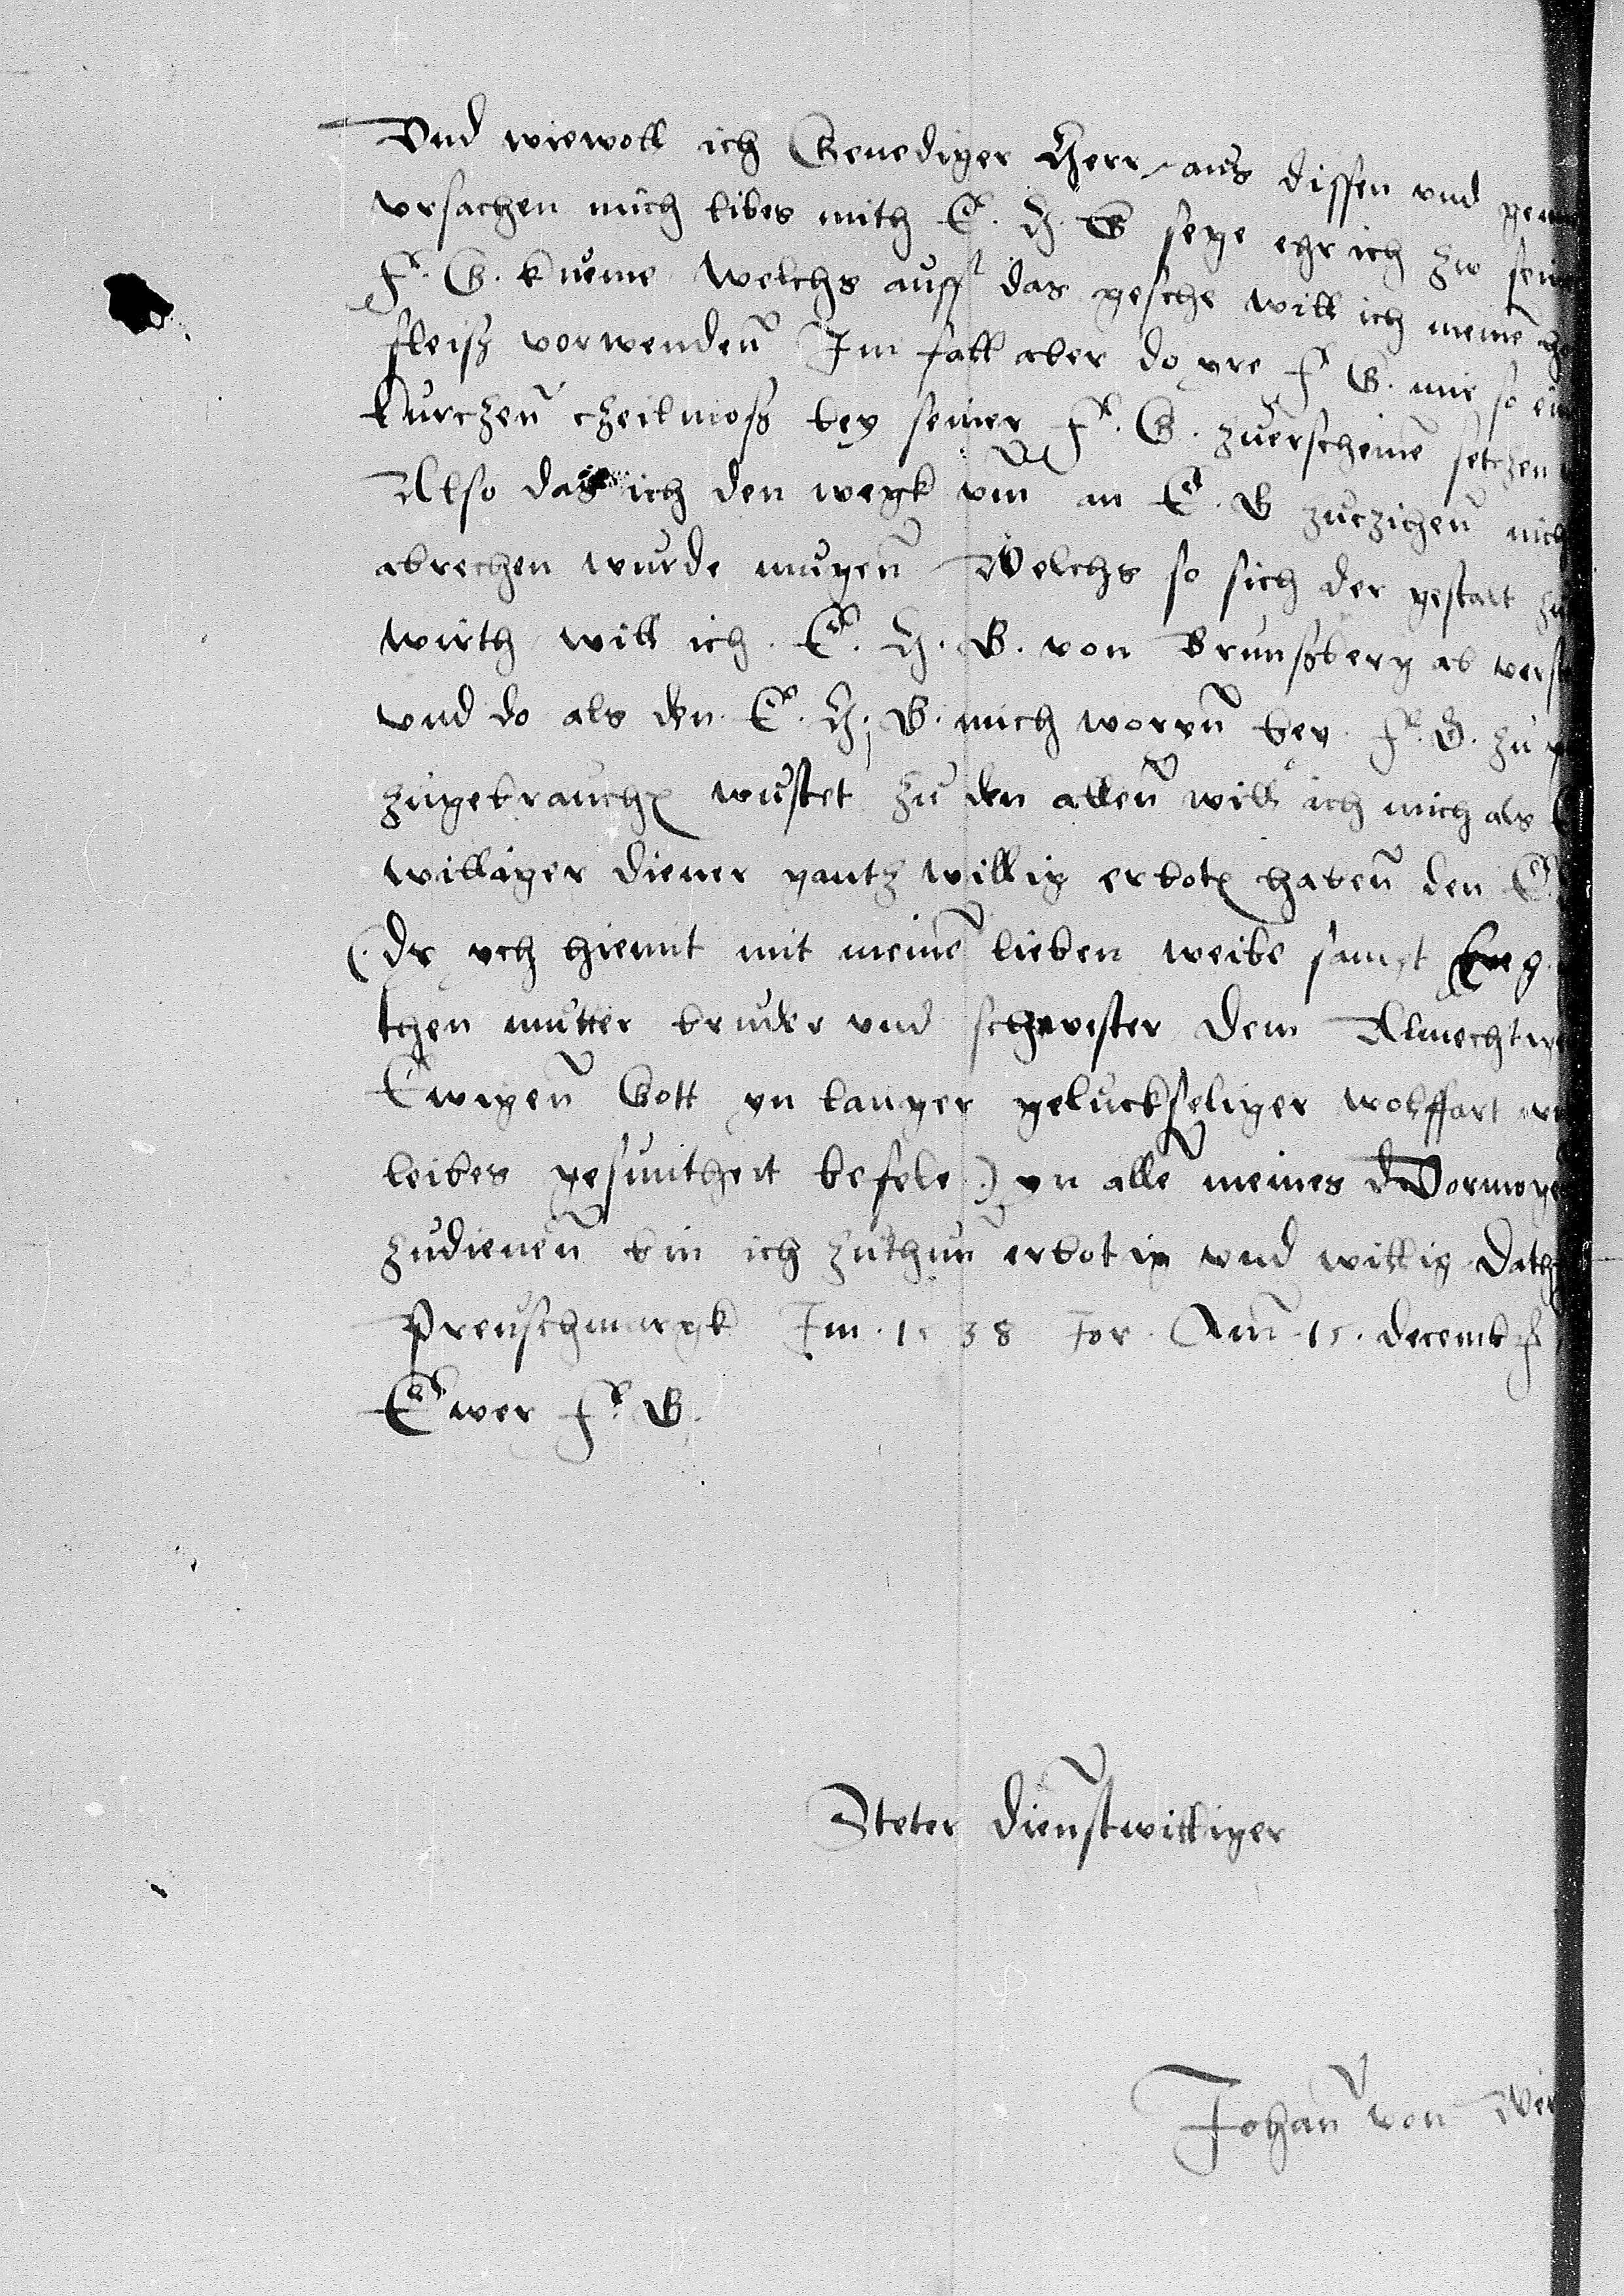 Vnd wiewoll ich Genediger Herr aus dissen vnd
vrsachen mich libes mith E. H. G sege ehr ich zw sein
F. G. kueme Welchs auff das gesche will ich meinē
fleisz vorwendenn Im fall aber do yre F G. mir so ein
kurczenn bey seiner F. G. zuerscheinē setzen
Also das ich den wegk vm an E. G zuczihenn nich
abrechen wurde mugenn Welchs so sich der gestalt zu
wirth will ich. E. H. G. von Brunszberg ab
vnd do als den E. H. G. mich woryn bey. F. G. zu
zugebrauch wustet zu den allenn will ich mich als
williger diener gantz willig erbot habenn den E.
(. ych hiemit mit meinē lieben weibe sampt
then mutter bruder vnd schwester dem Almechtig
Ewigenn Gott yn langer geluckseliger wolffart
leibes gesuntheit befele.) yn allē meines Vormoge
zudienenn bin ich zuthun erbotig vnd willig Dath
Preuschmargk Im 1538 Jor. Am 15. decemb
Ewer F. G.
Steter dienstwilliger
Johan von Wer